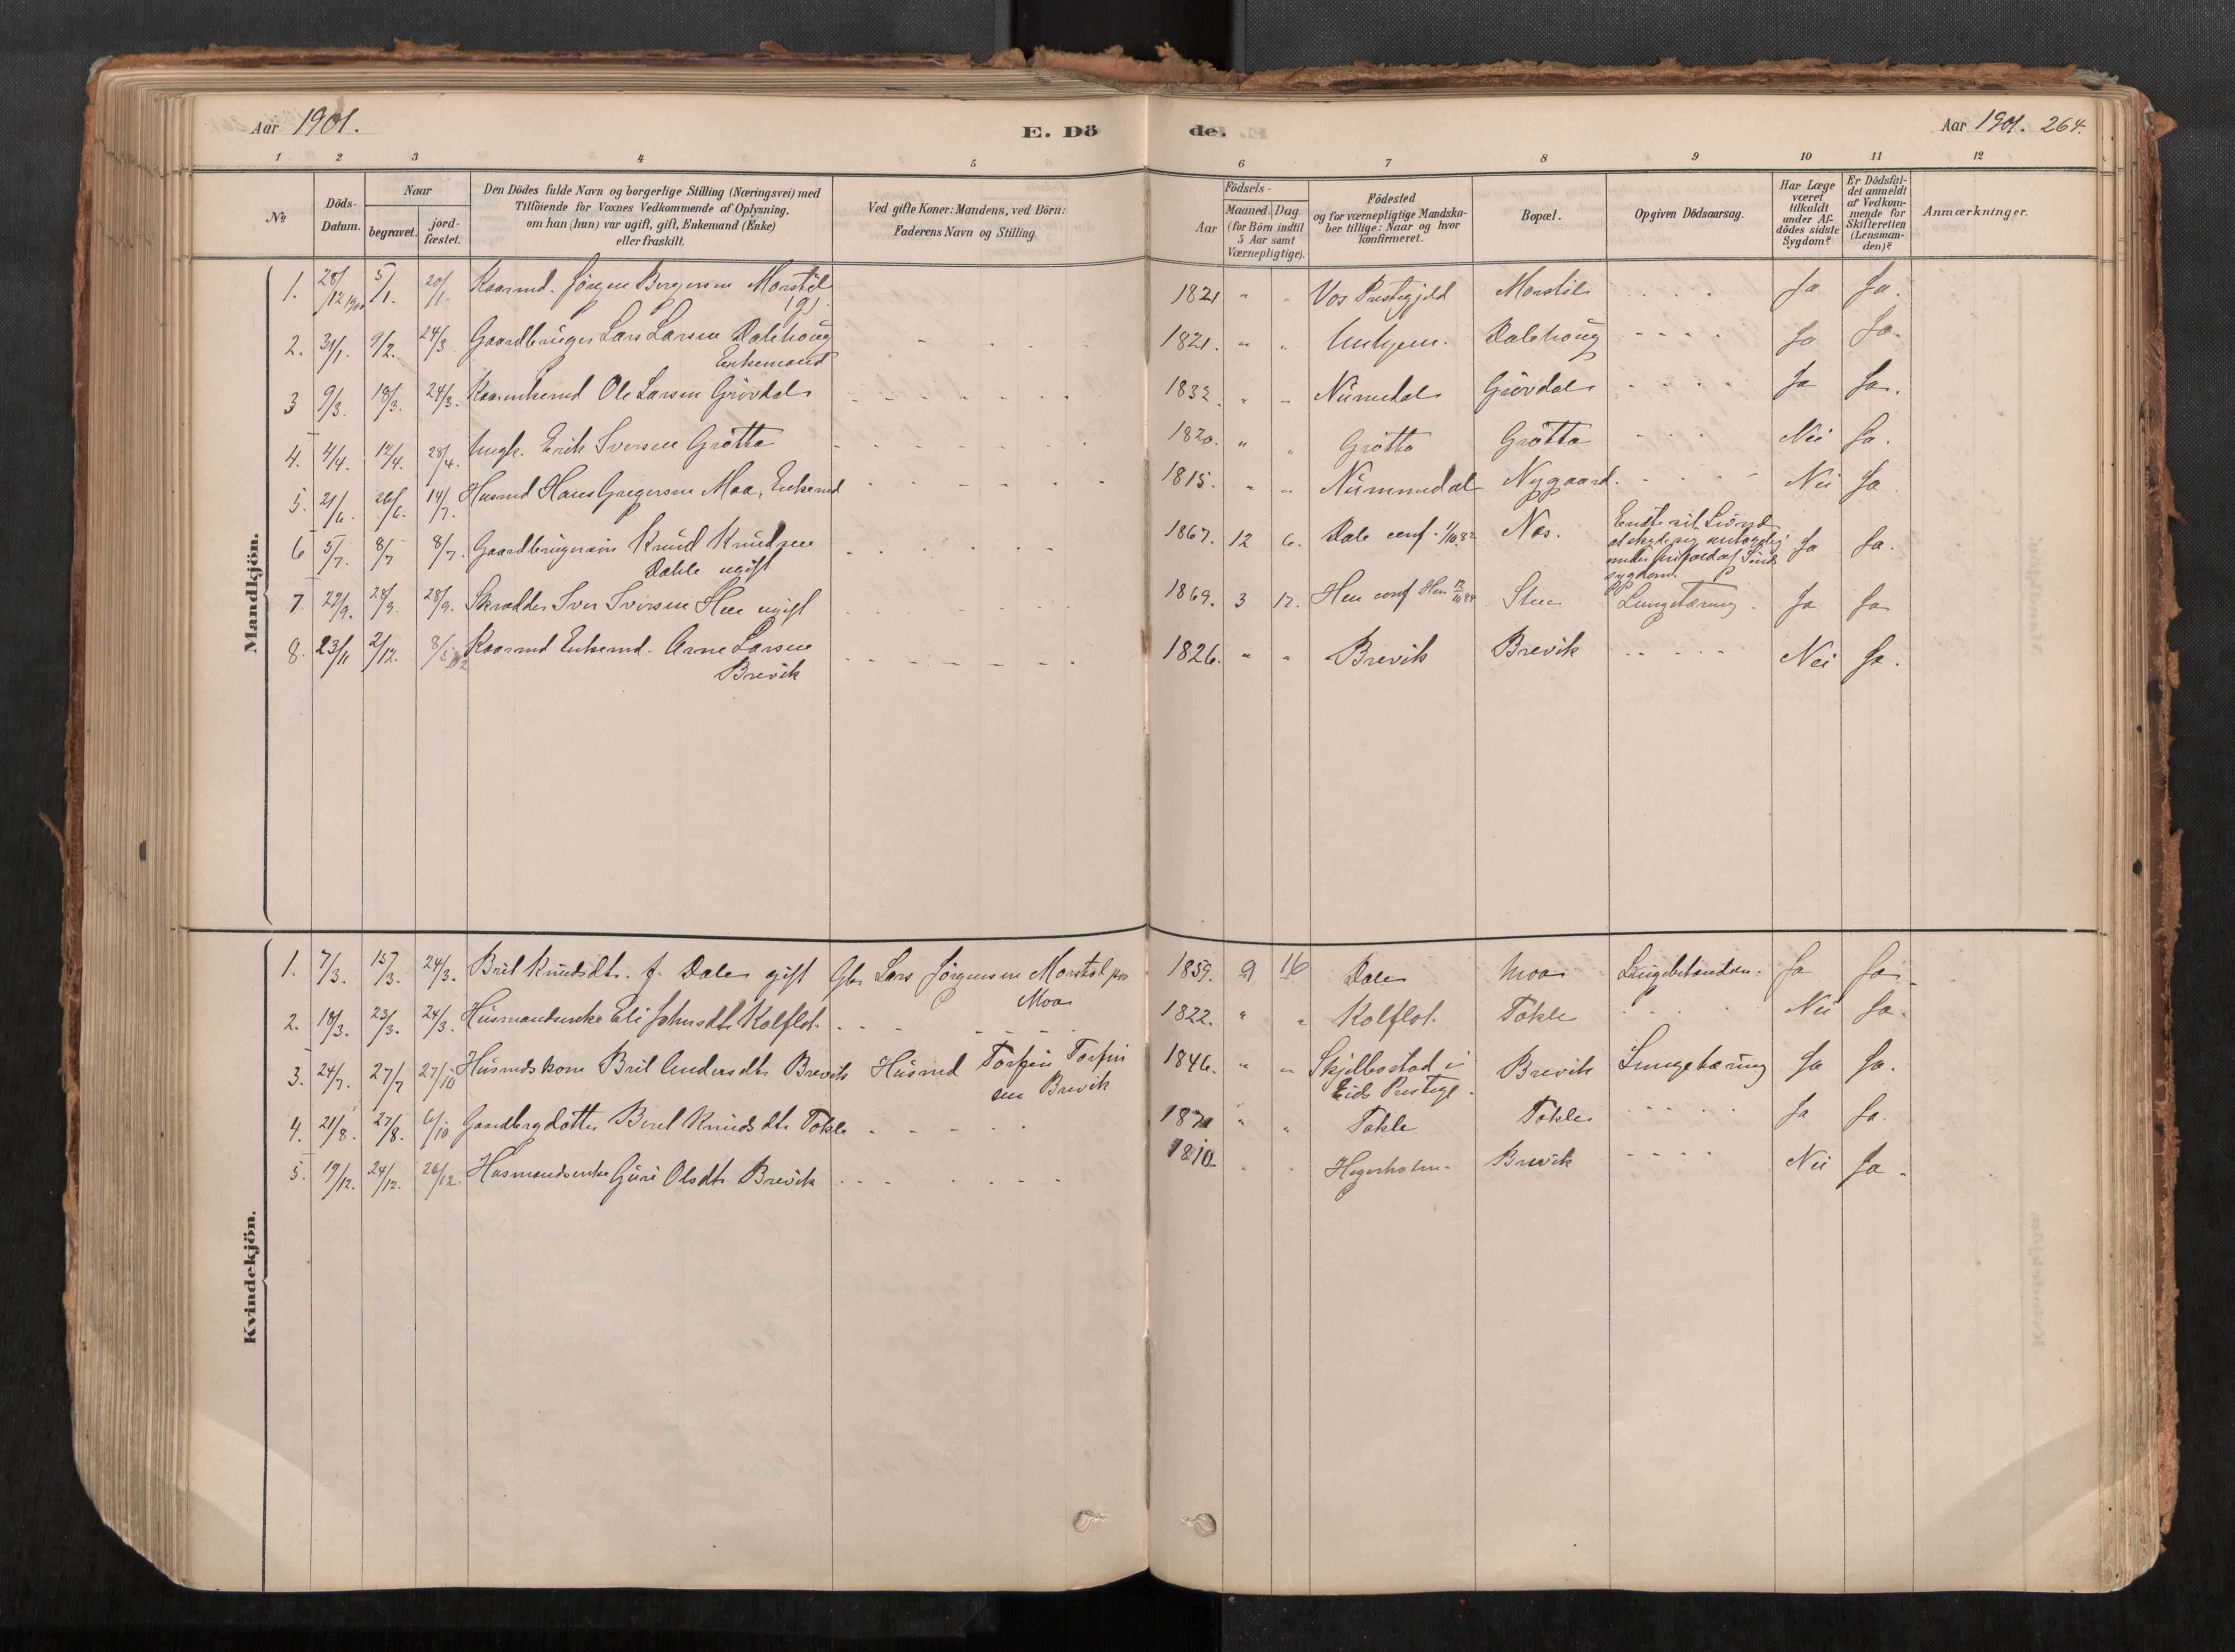 Aar 1901.
E. Dö
de.
Aar 1901. 264.
1 2 3 4 5 6 7 8 9 10 11 12
No
Döds-Datum.
Naar
begravet.
jord-fæstet.
Den Dödes fulde Navn og borgerlige Stilling (Næringsvei) med
Tilföiende for Voxnes Vedkommende af Oplysning,
om han (hun) var ugift, gift, Enkemand (Enke)
eller fraskilt.
Ved gifte Koner: Mandens, ved Börn:
Faderens Navn og Stilling.
Födsels-
Aar
Maaned. Dag.
(for Börn indtil
5 Aar samt
Værnepligtige).
Födested
og for værnepligtige Mandska-
ber tillige: Naar og hvor
konfirmeret.
Bopæl.
Opgiven Dödsaarsag.
Har Læge
været
tilkaldt
under Af-
dödes sidste
Sygdom?
Er Dödsfal-
det anmeldt
af Vedkom-
mende for
Skifteretten
(Lensman-
den)?
Anmærkninger.
Mandkjön.
1. 28/12 1900 5/1. 20/1. Kaarmd. Jörgen Bergersen Morstöl 1821 " " Vos Prestegjeld Morstöl Ja Ja.
2. 31/1. 9/2. 24/3 Gaardbruger Lars Larsen Dalehoug 1821. " " Dalehoug Ja Ja.
Enkemand
3 9/3. 18/3. 24/3. Kaarenkemd Ole Larsen Grövdal 1832. " " Numedal Grövdal Ja Ja.
4. 4/4. 12/4. 28/4. Ungk. Erik Iversen Grötta 1820. " " Grötta Grötta Nei Ja.
5. 21/6. 26/6. 14/7. Husmd Hans Gregersen Moa, Enkemd 1815. " " Nummedal Nygaard. Nei Ja
6 5/7. 8/7 8/7. Gaardbrugersøn Knud Knudsen 1867. 12 6. Dale conf. 1/10.82 Nes. Endte sit Liv ved Ja Ja.
Dahle ugift
at skyde sig
under
sygdom.
7. 22/9. 28/9. 28/9. Skrædder Iver Iversen Hen ugift 1869. 3 17. Hen conf Hen 12/10 84 Sten Lungetæring. Ja Ja
8. 23/11 2/12. 8/5 02 Kaarmd Enkemd. Arne Larsen 1826. " " Brevik Brevik Nei Ja.
Brevik
Kvindekjön.
1. 7/3. 15/3. 24/3. Brit Knudsdt. f. Dale gift Gbr. Lars Jörgensen Morstöl paa 1859. 9 16 Dale Moa Lungebetændelse. Ja Ja
Moa
2. 18/3. 23/3. 24/3. Husmandsenke Eli Johnsdt. Kolflot. 1822. " " Kolflot. Tokle Nei Ja.
3. 24/7. 27/7 27/10 Husmdskone Brit Andersdt. Brevik Husmd Torfin Torfin 1846. " " Skjelbostad i Brevik Lungetæring Ja Ja.
sen Brevik
Eids Prestegj.
4. 21/8. 27/8. 6/10 Gaardbrgdatter Beret Knudsdt. Tokle 1871 " " Tokle Tokle Ja Ja.
5. 19/12. 24/12. 26/12. Husmandsenke Guri Olsdt. Brevik 1810 Hegerholm. Brevik Nei Ja.